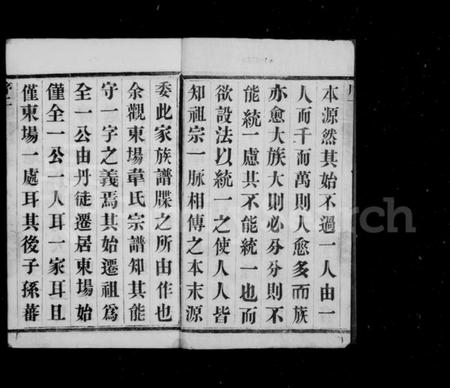 本源然其始不過一人由一
人而千而萬則人愈多而族
亦愈大族大則必分分則不
能統一慮其不能統一也而
欲設法以統一之使人人皆
知祖宗一脉相傳之本末源
委此家族譜牒之所由作也
余觀東場韋氏宗譜知其能
守一字之義焉其始遷祖為
全一公由丹徒遷居東場始
僅全一公一人耳一家耳且
僅東場一處耳其後子孫蕃